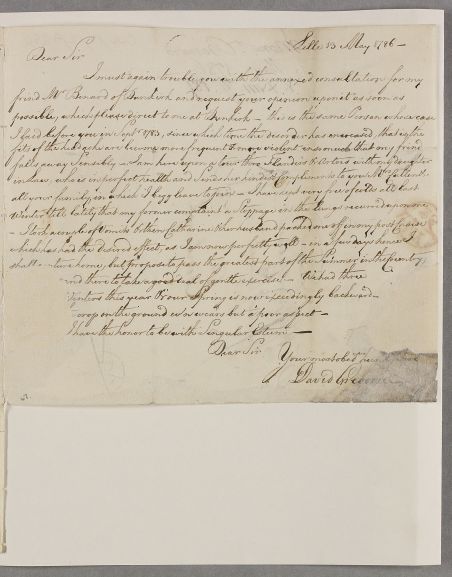 Lille 13 May 1786 —
Dear Sir
I must again trouble you with the annexed consultation for my
friend Mr Benard of Dunkirk and request your opinion upon it as soon as
possible, which please direct to me at Dunkirk — this is the same Person whose case
I laid before you in Septr 1783, since which time the disorder has encreased that is the
fits of the headach are become more frequent & more violent insomuch that my friend
falls away sensibly — I am here upon a tour thro Flanders & Artois with my Daughter
in Law, who is in perfect health and sends her kindest Compliments to you Mrs Cullen &
all your family, in which I begg leave to join — I have been very free of colds all last
Winter till lately that my former complaint a Stoppage in the lungs returned upon me
— I took a couple of Vomits & then Catharine & her husband packed me off in my post chaise
which has had the desired effect as I am now perfectly well — in a few days hence I
shall return home, but propose to pass the greatest part of the Summer in the Country
and there to take a good deal of gentle exercise — We had three
Winters this year & our Spring is now exceedingly backward —
crop on the ground wears but a poor aspect —
I have the honor to be with Singular Esteem —
Dear Sir
Your most obed
David Gregorie